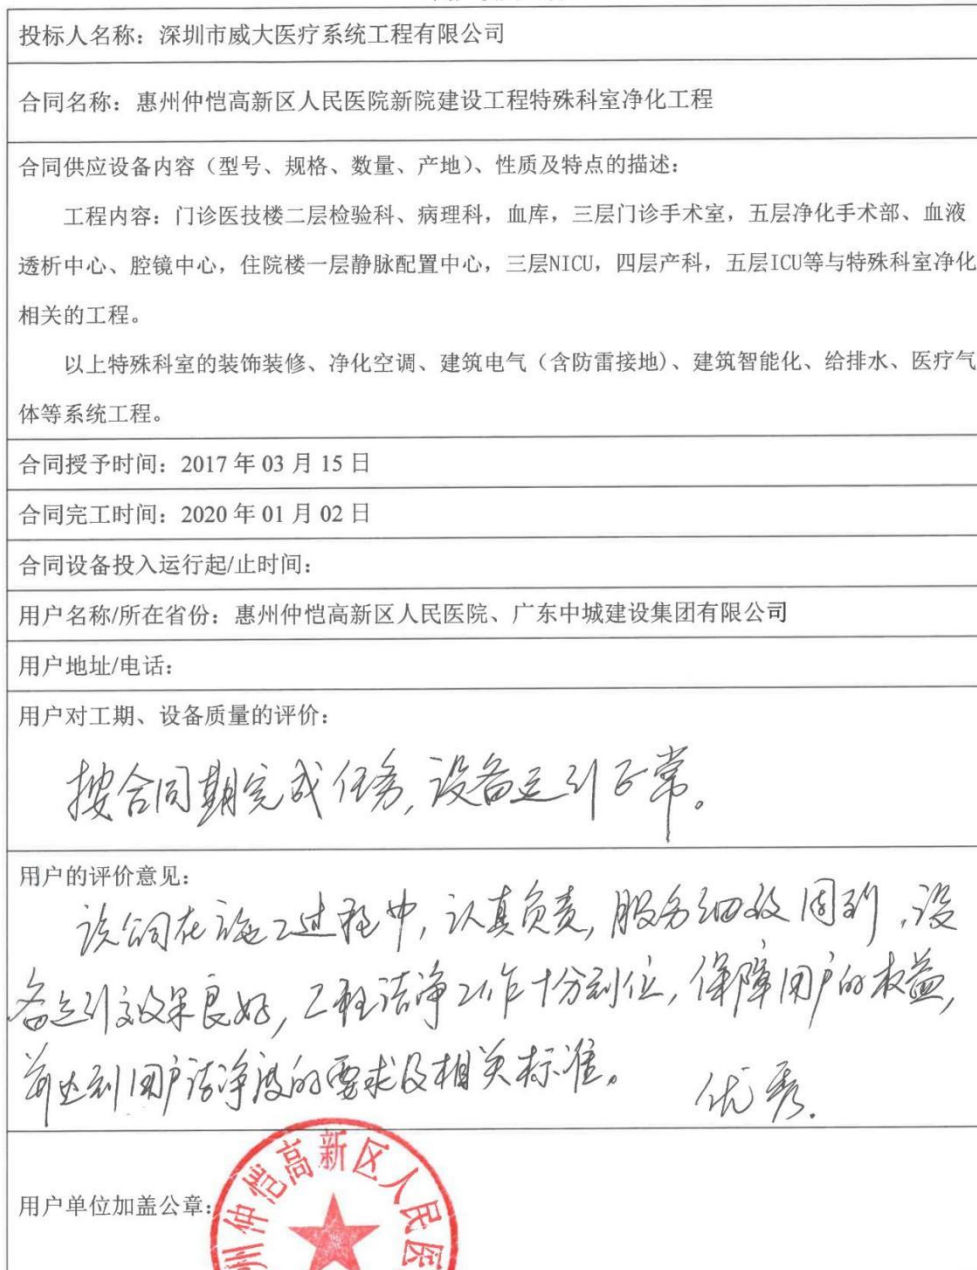 投标人名称：深圳市威大医疗系统工程有限公司
合同名称：惠州仲恺高新区人民医院新院建设工程特殊科室净化工程
合同供应设备内容（型号、规格、数量、产地）、性质及特点的描述：
工程内容：门诊医技楼二层检验科、病理科，血库，三层门诊手术室，五层净化手术部、血液
透析中心、腔镜中心，住院楼一层静脉配置中心，三层NICU，四层产科，五层ICU等与特殊科室净化
相关的工程。
以上特殊科室的装饰装修、净化空调、建筑电气（含防雷接地）、建筑智能化、给排水、医疗气
体等系统工程。
合同授予时间：2017年03月15日
合同完工时间：2020年01月02日
合同设备投入运行起/止时间：
用户名称/所在省份：惠州仲恺高新区人民医院、广东中城建设集团有限公司
用户地址/电话：
用户对工期、设备质量的评价：
按合同期完成任务，设备运行正常。
用户的评价意见：
该公司在施工过程中，认真负责，服务细致周到，设
备运行效果良好，工程洁净工作十分到位，保障用户的权益，
并达到用户洁净度的要求及相关标准。 优秀.
用户单位加盖公章：
州仲恺高新区人民医